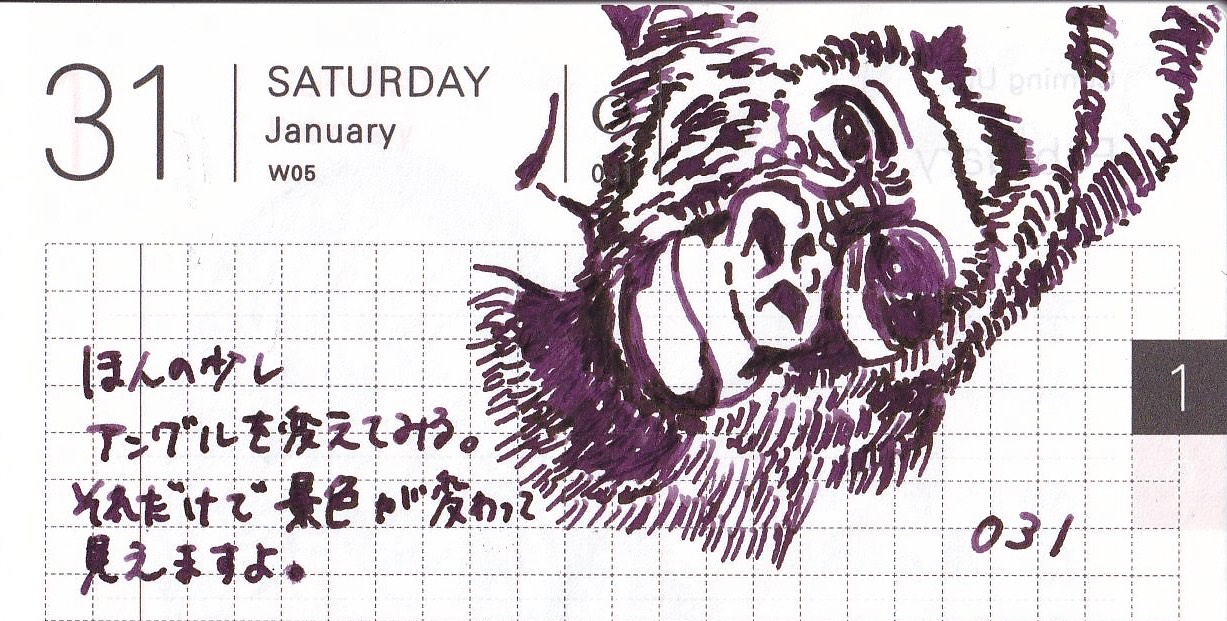 31
SATURDAY
January
W05
ほんの少し
アングルを変えてみる。
それだけで景色が変わって
見えますよ。
031
1